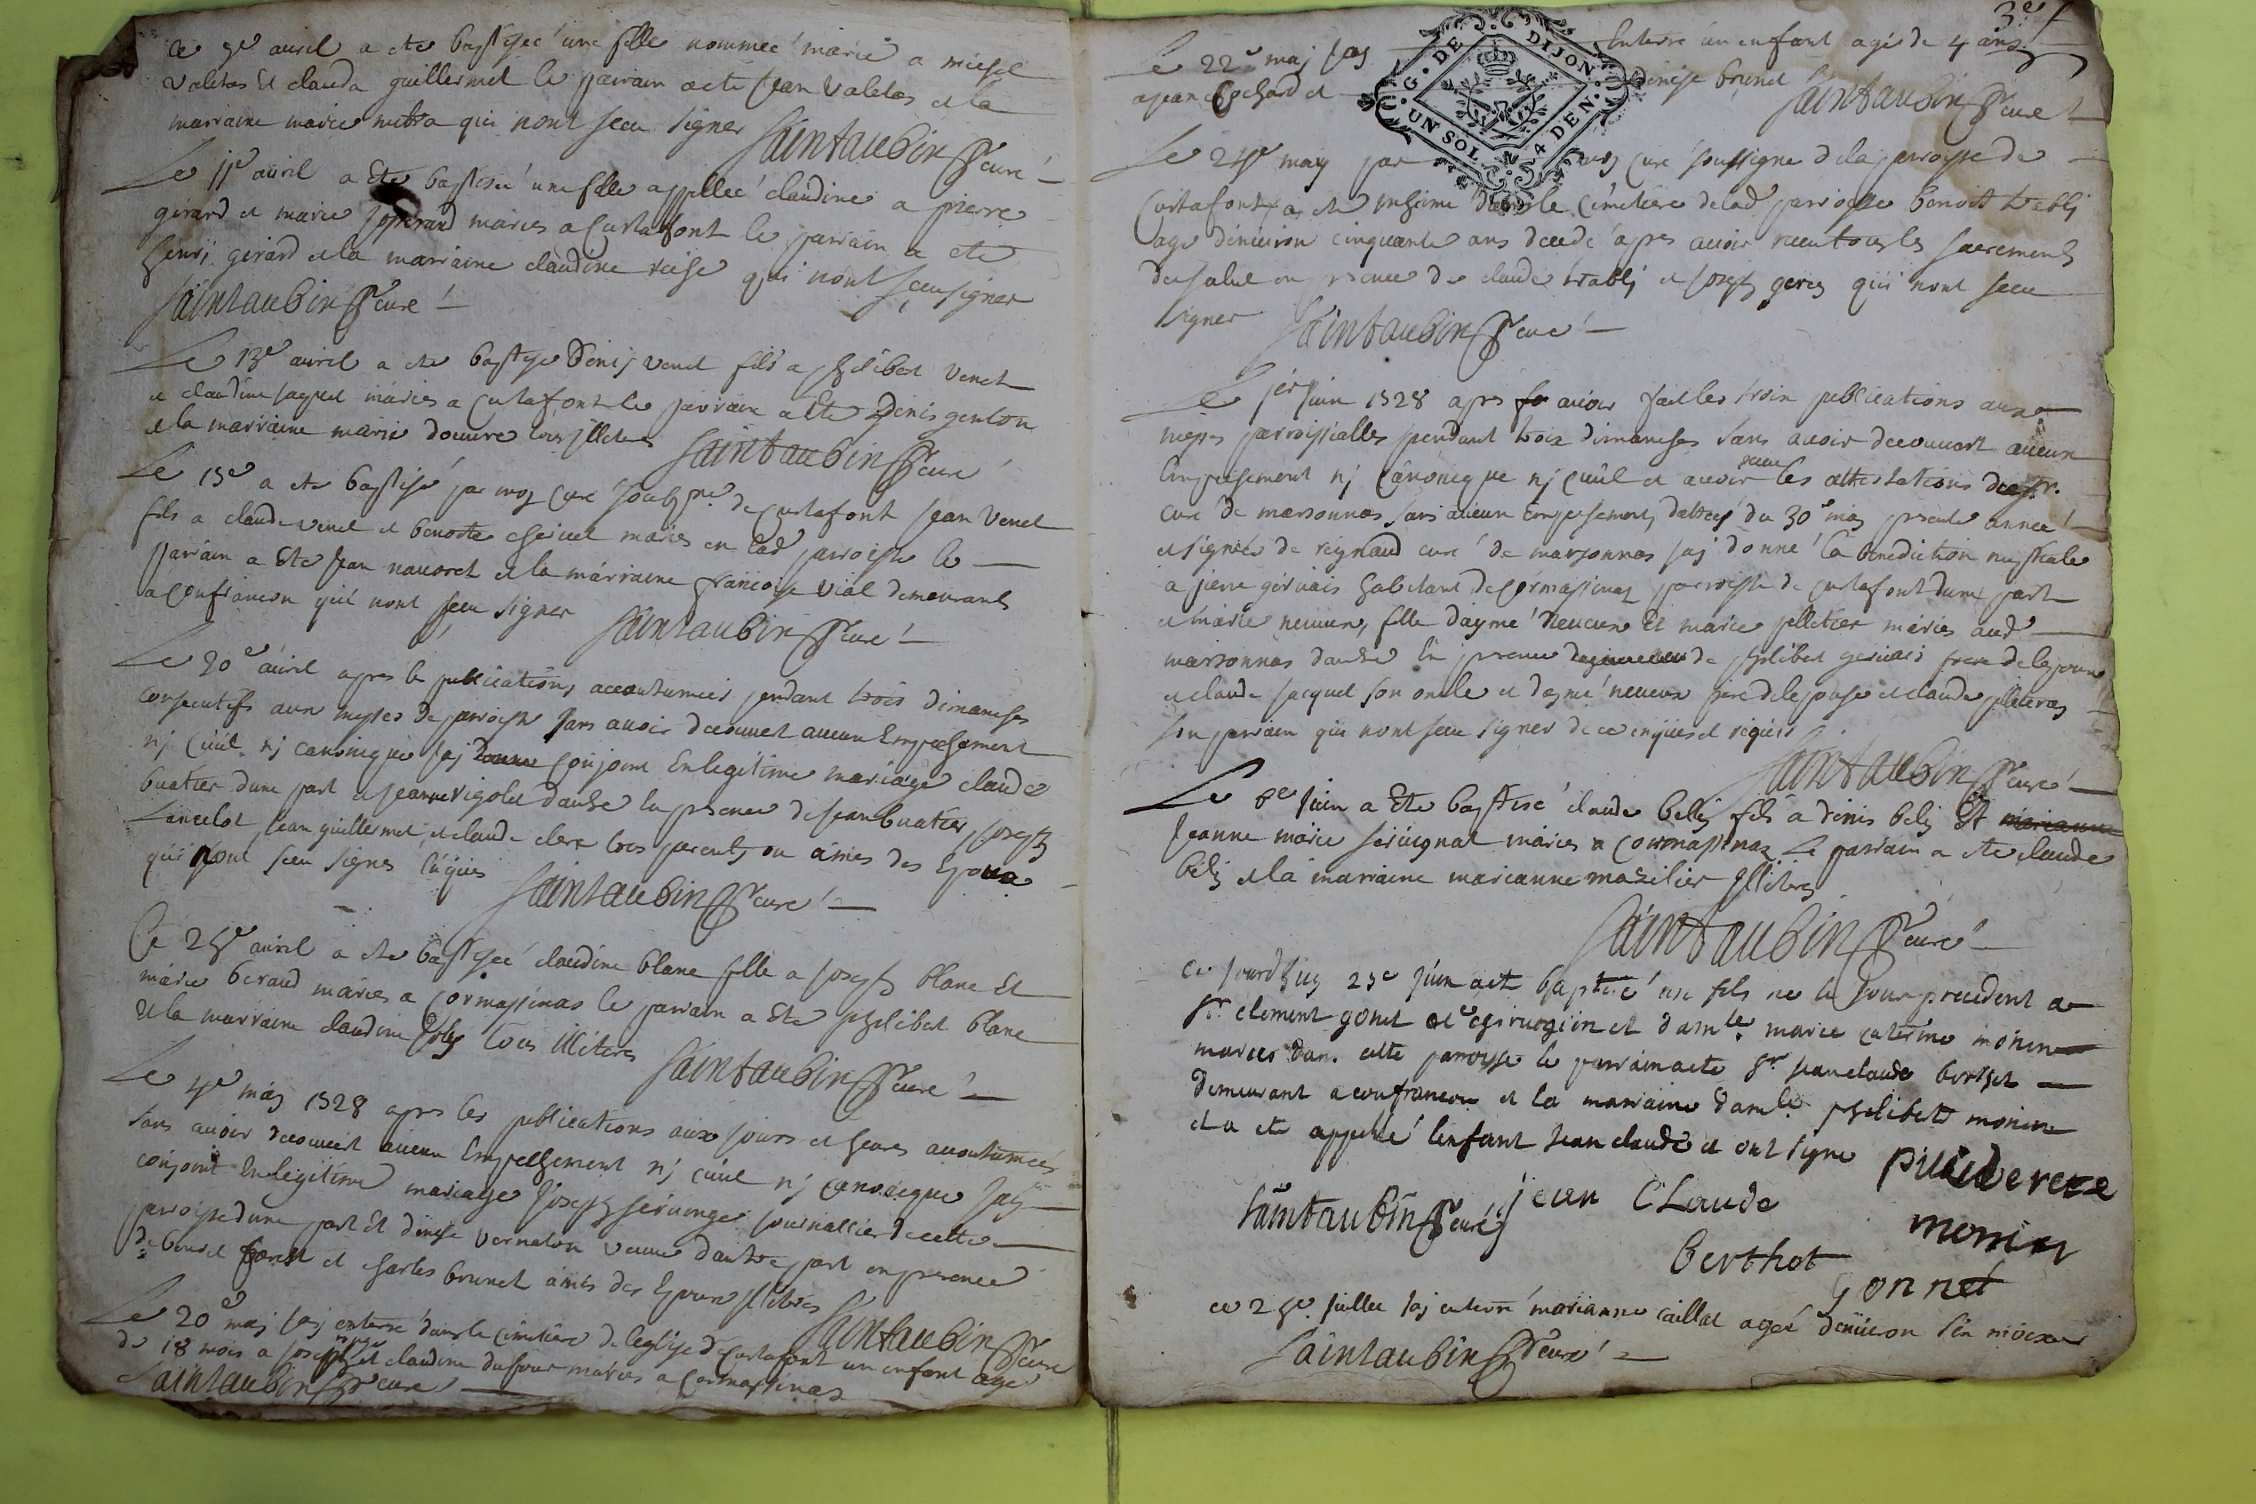 Ce 9e avril a ete baptisée une fille nommee marie a michel
valetas et clauda guillermet le parrain a ete jean valetas et la
marraine marie mitra qui nont sceu signer Saintaubin curé
Le 11e avril a ete baptisée une fille appellée claudine a pierre
girard et marie mariés a Curtafont le parrain a ete
henrÿ girard et la marraine claudine qui nont sceu signer
Saintaubin curé
Le 13e avril a ete baptise Denis venet fils a philibert venet
et claudine jaquet mariés a Curtafont le parrain a ete Denis genton
et la marraine marie illiteres Saintaubin curé
Le 15e a ete baptisé par moy curé soubsne de Curtafont jean venet
fils a claude venet et benoite mariés en lad parroisse le
parrain a ete jean nauoret et la marraine francoise vial demeurants
a confrancon qui nont sceu signer Saintaubin curé
Le 20e avril apres les publications accoutumées pendant trois dimanches
consecutifs aux messes de parroisse sans avoir decouvert aucun Empechement
nj Civil nj canonique jaj conjoint En legitime mariage claude
buatier dune part et jeanne vigolet dautre En presence de jean buatier, joseph
Lancelot, jean guillermet, et claude clerc tous parents ou amies des Epoux
qui nont sceu signer Saintaubin curé
Ce 25e avril a ete baptisée claudine blanc fille a joseph blanc Et
marie beraud mariés a Cormassinas le parrain a ete philibert blanc
Et la marraine claudine tous illiteres Saintaubin curé
Le 4e maj 1728 apres les publications aux jours et heures accoutumées
sans avoir decouvert aucun Empechement nj civil nj canonique jaj
conjoint En legitime mariage joseph journallier de cette
parroisse dune part Et denise vernaton veuve dautre part en presence
de benoit et charles brunet amis des Epoux illiteres
Saintaubin curé
Le 20e maj jaj enterré dans le cimetiere de leglise de Curtafont un enfant agé
de 18 mois a joseph et claudine dufour mariés a Cormassinas
Saintaubin curé
3e f
G. DE DIJON.
UN SOL. 4 DEN.
Le 22e maj jaj Enterré un enfant agé de 4 ans
a jean Cochard et denise brunet
Saintaubin curé
Le 24e may par moy curé soussigne de la parroisse de
Curtafont a ete inhumé dans le Cimetiere de lad parroisse benoit trablj
agé denviron cinquante ans decedé apres avoir receu tous les sacrements
de salut en presence de claude trablj et joseph qui nont sceu
signer Saintaubin curé
Le 1er juin 1728 apres avoir fait les trois publications aux
messes parroissialles pendant trois dimanches sans avoir decouvert aucun
Empechement nj Canonique nj Civil et avoir receu les attestations du sr.
curé de marsonnas sans aucun empechement, dattées du 30e maj presente année
et signées de regnaud curé de marsonnas jaj donné la benediction nuptiale
a pierre gervais habitant de Cormassinas parroisse de Curtafont dune part
et marie neuveu, fille daymé neuveu Et marie pelletier mariés aud
marsonnas dautre En presence de philibert gervais frere de lepoux
et claude jacquet son oncle et daymé neuveu pere de lepouse et claude
son parrain qui nont sceu signer de ce enquis et requis
Saintaubin curé
Le 8e juin a ete baptisé claude belÿ fils a denis belÿ Et marianne
jeanne marie mariés a Cormassinas Le parrain a ete claude
belÿ et la marraine marianne mazilier illiteres
Saintaubin curé
Ce jourdhuy 25e juin a et baptisé un fils né le jour precedent a
sr. clement gonet Me chirurgien et damle. marie caterine monin
mariés dans cette parroisse le parrain a ete sr jean claude berthet
demeurant a confrancon et la marraine damle philiberte monin
et a ete appellé lenfant jean claude et ont signe
Saintaubin curé jean CLaude
Berthot monin
Gonnet
ce 25e juillet jaj enterré marianne caillat agée denviron six mois
Saintaubin curé